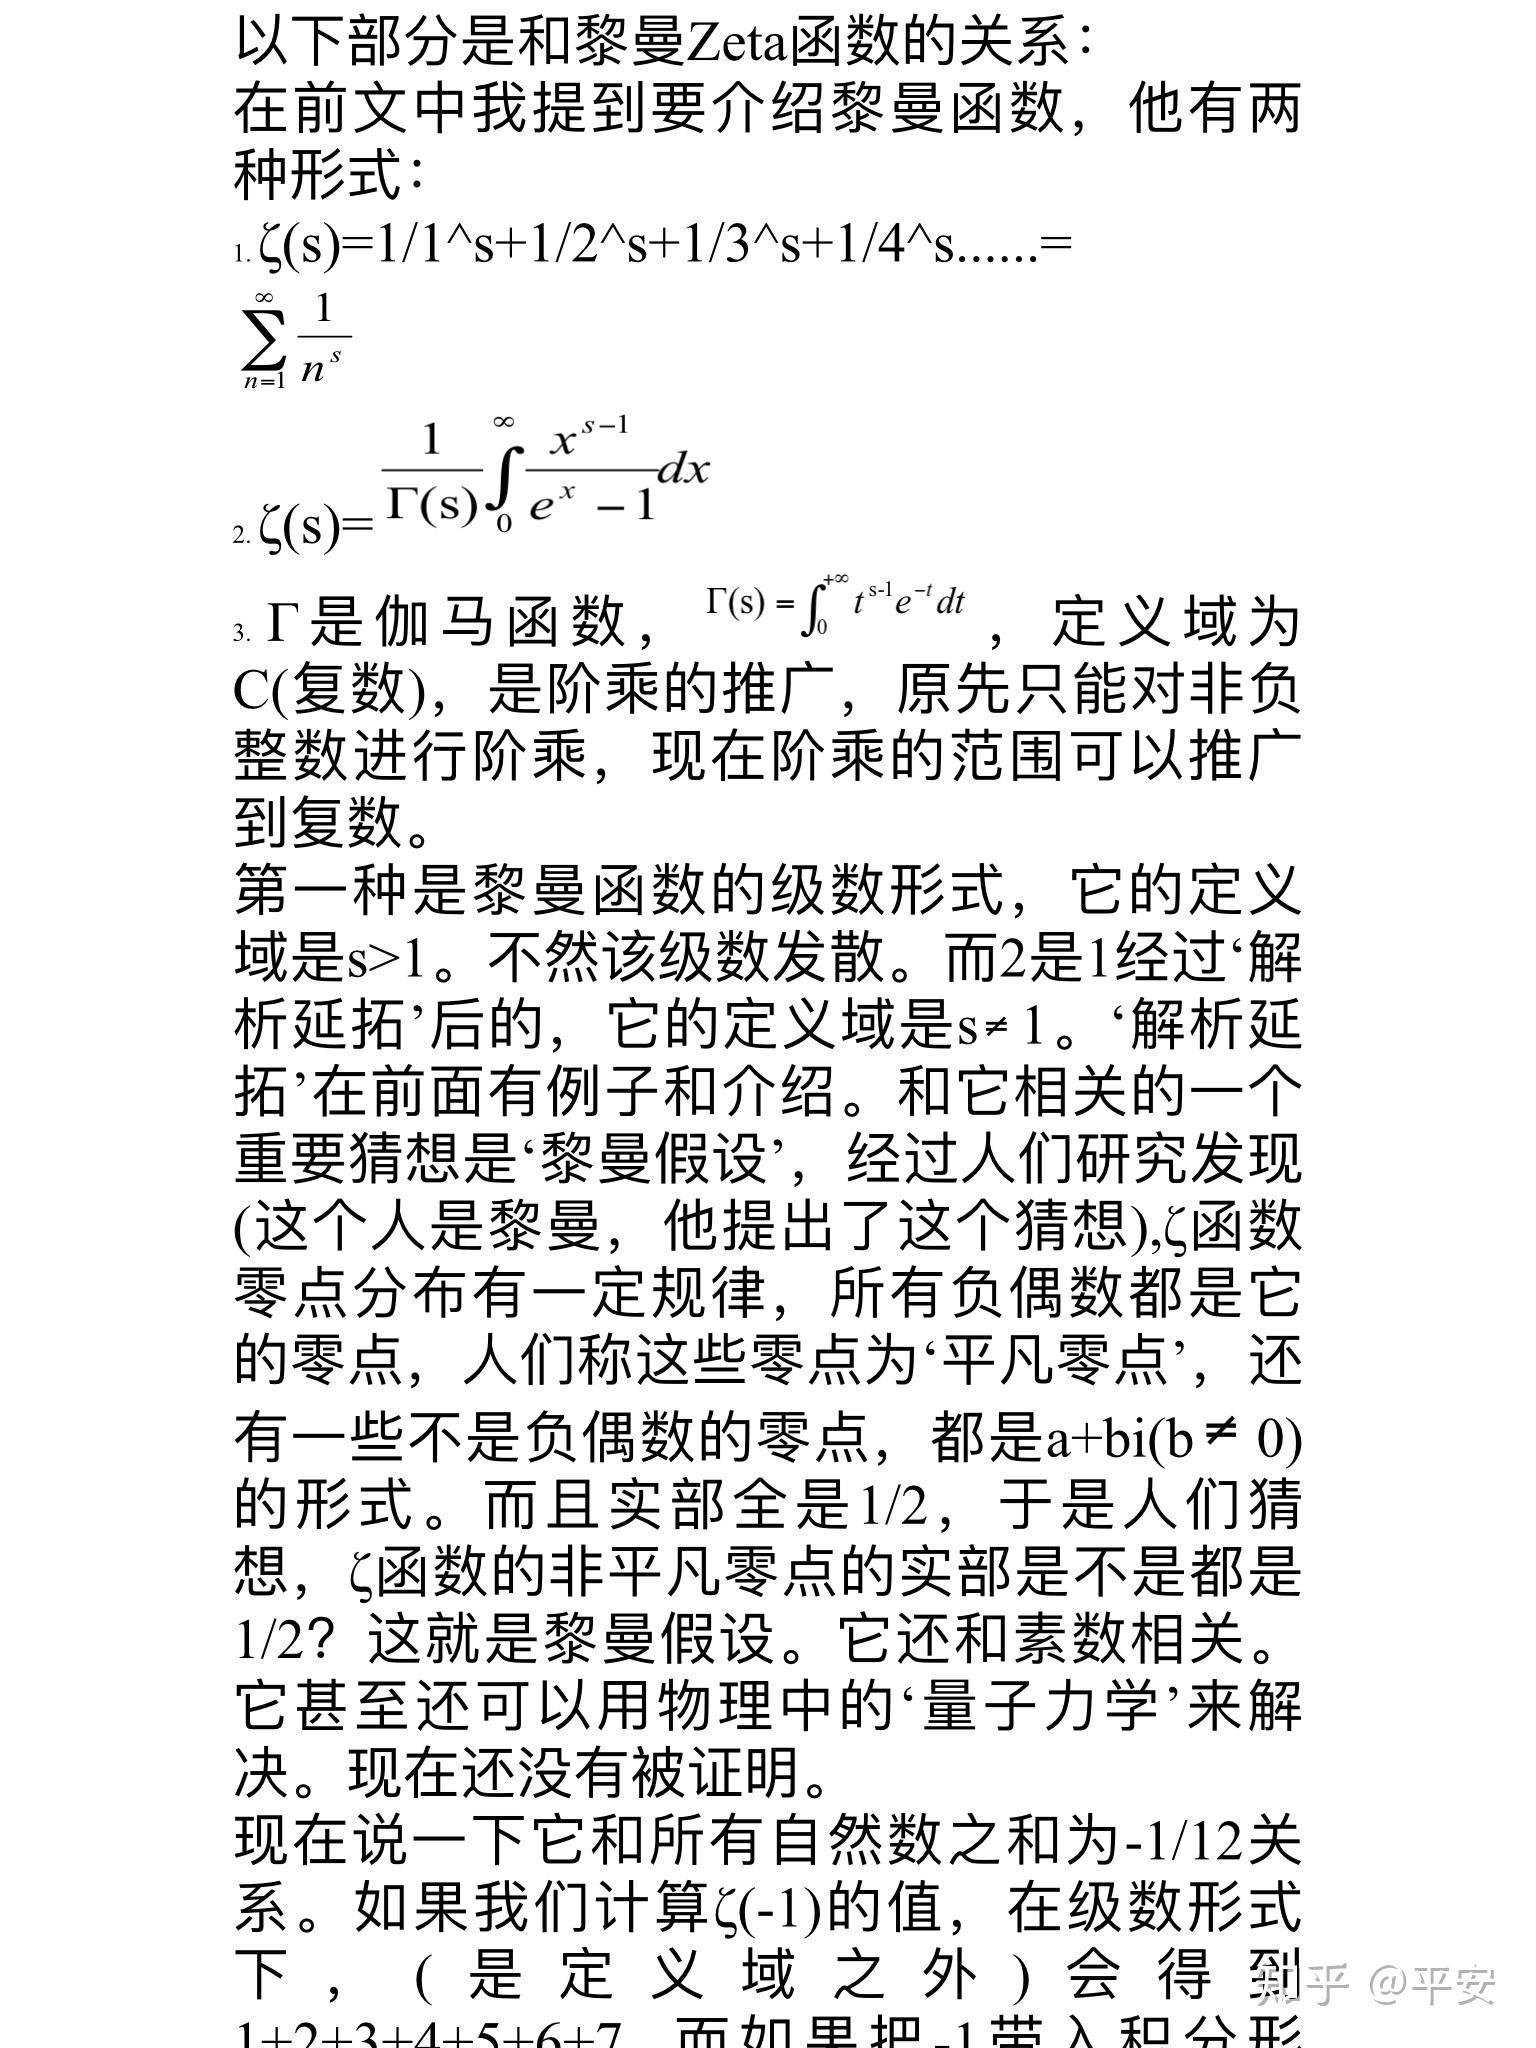 以下部分是和黎曼Zeta函数的关系：
在前文中我提到要介绍黎曼函数，他有两
种形式：
1. ζ(s)=1/1^s+1/2^s+1/3^s+1/4^s......=
∑_{n=1}^{∞} 1/n^s
2. ζ(s)= 1/Γ(s) ∫_0^∞ x^{s−1}/(e^x − 1) dx
3. Γ是伽马函数， Γ(s) = ∫_0^{+∞} t^{s-1} e^{−t} dt ，定义域为
C(复数)，是阶乘的推广，原先只能对非负
整数进行阶乘，现在阶乘的范围可以推广
到复数。
第一种是黎曼函数的级数形式，它的定义
域是s>1。不然该级数发散。而2是1经过‘解
析延拓’后的，它的定义域是s≠1。‘解析延
拓’在前面有例子和介绍。和它相关的一个
重要猜想是‘黎曼假设’，经过人们研究发现
(这个人是黎曼，他提出了这个猜想),ζ函数
零点分布有一定规律，所有负偶数都是它
的零点，人们称这些零点为‘平凡零点’，还
有一些不是负偶数的零点，都是a+bi(b≠0)
的形式。而且实部全是1/2，于是人们猜
想，ζ函数的非平凡零点的实部是不是都是
1/2？这就是黎曼假设。它还和素数相关。
它甚至还可以用物理中的‘量子力学’来解
决。现在还没有被证明。
现在说一下它和所有自然数之和为-1/12关
系。如果我们计算ζ(-1)的值，在级数形式
下，(是定义域之外)会得到
1+2+3+4+5+6+7 而如果把-1带入积分形
知乎 @平安